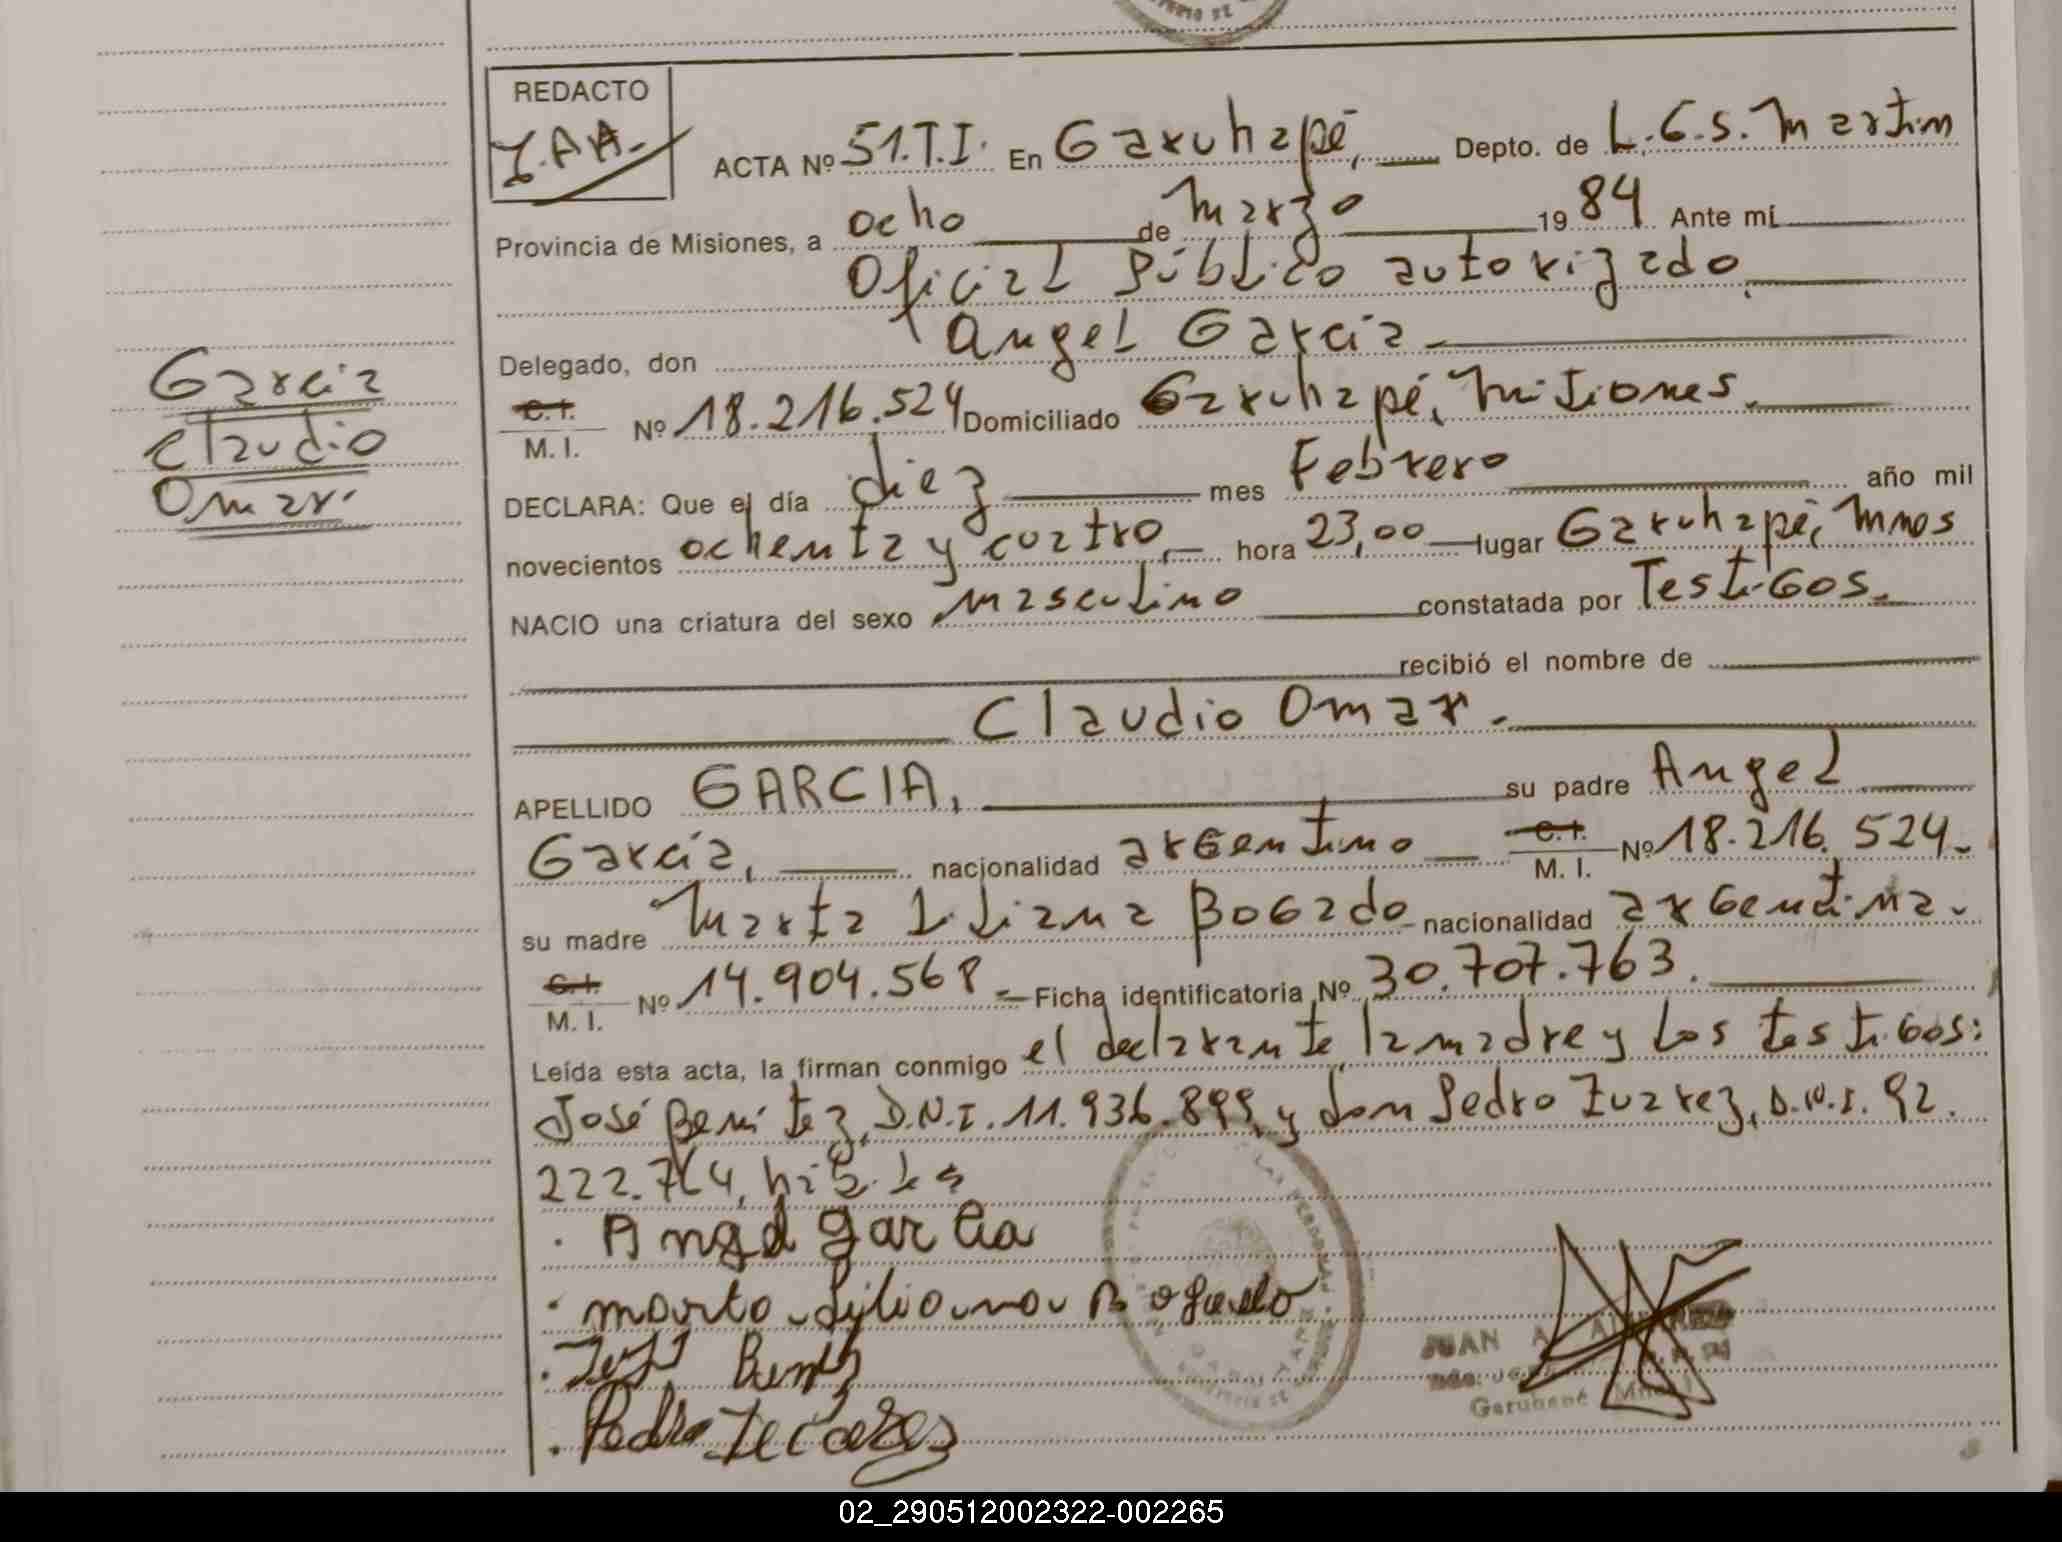 REDACTO
J.A.A.
ACTA Nº 51.T.I. En Garuhapé, Depto. de L.G.S. Martin
Provincia de Misiones, a ocho de Marzo 1984 Ante mí
Oficial Público autorizado
Delegado, don Angel Garcia
C.I. M. I. Nº 18.216.524 Domiciliado Garuhapé, Misiones.
DECLARA: Que el día diez mes Febrero año mil
novecientos ochenta y cuatro, hora 23,00 lugar Garuhapé, Mnes
NACIO una criatura del sexo masculino constatada por Testigos.
recibió el nombre de
Claudio Omar.
APELLIDO GARCIA, su padre Angel
García, nacionalidad argentino C.I. M. I. Nº 18.216.524.
su madre Marta Liliana Bogado nacionalidad argentina.
C.I. M. I. Nº 14.904.568 Ficha identificatoria Nº 30.707.763.
Leída esta acta, la firman conmigo el declarante, la madre y los testigos:
José Benítez, D.N.I. 11.936.899, y don Pedro Zuarez, D.N.I. 92.
222.764, hábiles
Angel garcia
marta Liliana Bogado
Pedro
JUAN A.
Garuhapé
Garcia
Claudio
Omar.
02_290512002322-002265